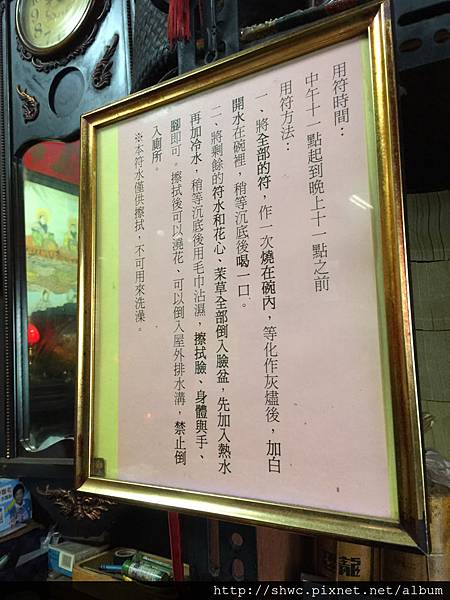 用符時間：
中午十一點起到晚上十一點之前
用符方法：
一、將全部的符，作一次燒在碗內，等化作灰燼後，加白
開水在碗裡，稍等沉底後喝一口。
二、將剩餘的符水和花心、茉草全部倒入臉盆，先加入熱水
再加冷水，稍等沉底後用毛巾沾濕，擦拭臉、身體與手、
腳即可。擦拭後可以澆花、可以倒入屋外排水溝，禁止倒
入廁所。
※本符水僅供擦拭，不可用來洗澡。
http://shwc.pixnet.net/album